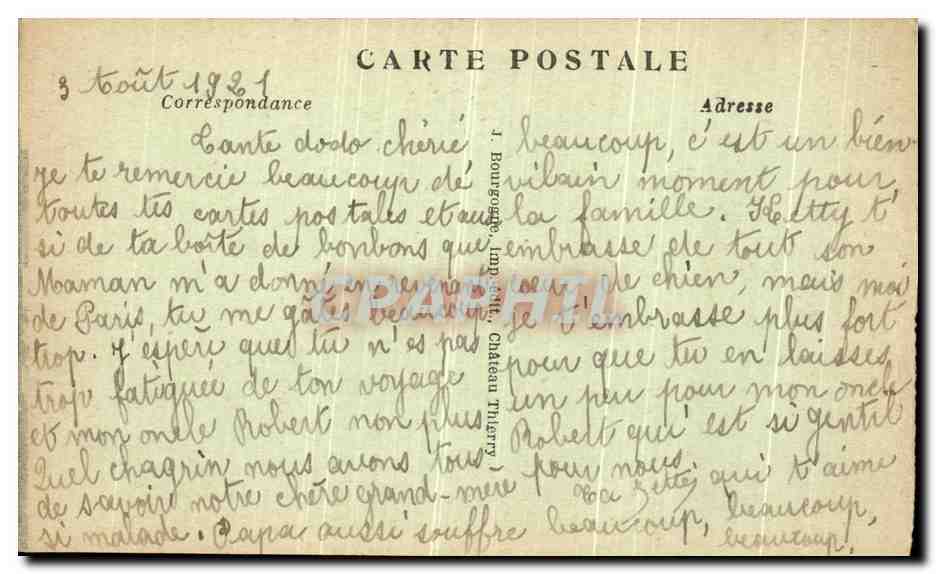 CARTE POSTALE
3 Août 1921
Correspondance
Adresse
Tante dodo chérie
je te remercie beaucoup de
toutes tes cartes postales et aus
si de ta boîte de bonbons que
Maman m'a donné en revenant
de Paris, tu me gâtes beaucoup
trop. J'espère que tu n'es pas
trop fatiguée de ton voyage
et mon oncle Robert non plus
Quel chagrin nous avons tous
de savoir notre chère grand-mère
si malade. Papa aussi souffre
J. Bourgogne, imp.-édit., Château Thierry
beaucoup, c'est un bien
vilain moment pour
la famille. Ketty t'
embrasse de tout son
cœur de chien, mais moi
je t'embrasse plus fort
pour que tu en laisses
un peu pour mon oncle
Robert qui est si gentil
pour nous.
Ta qui t'aime
beaucoup, beaucoup,
beaucoup.
CPAPHIL